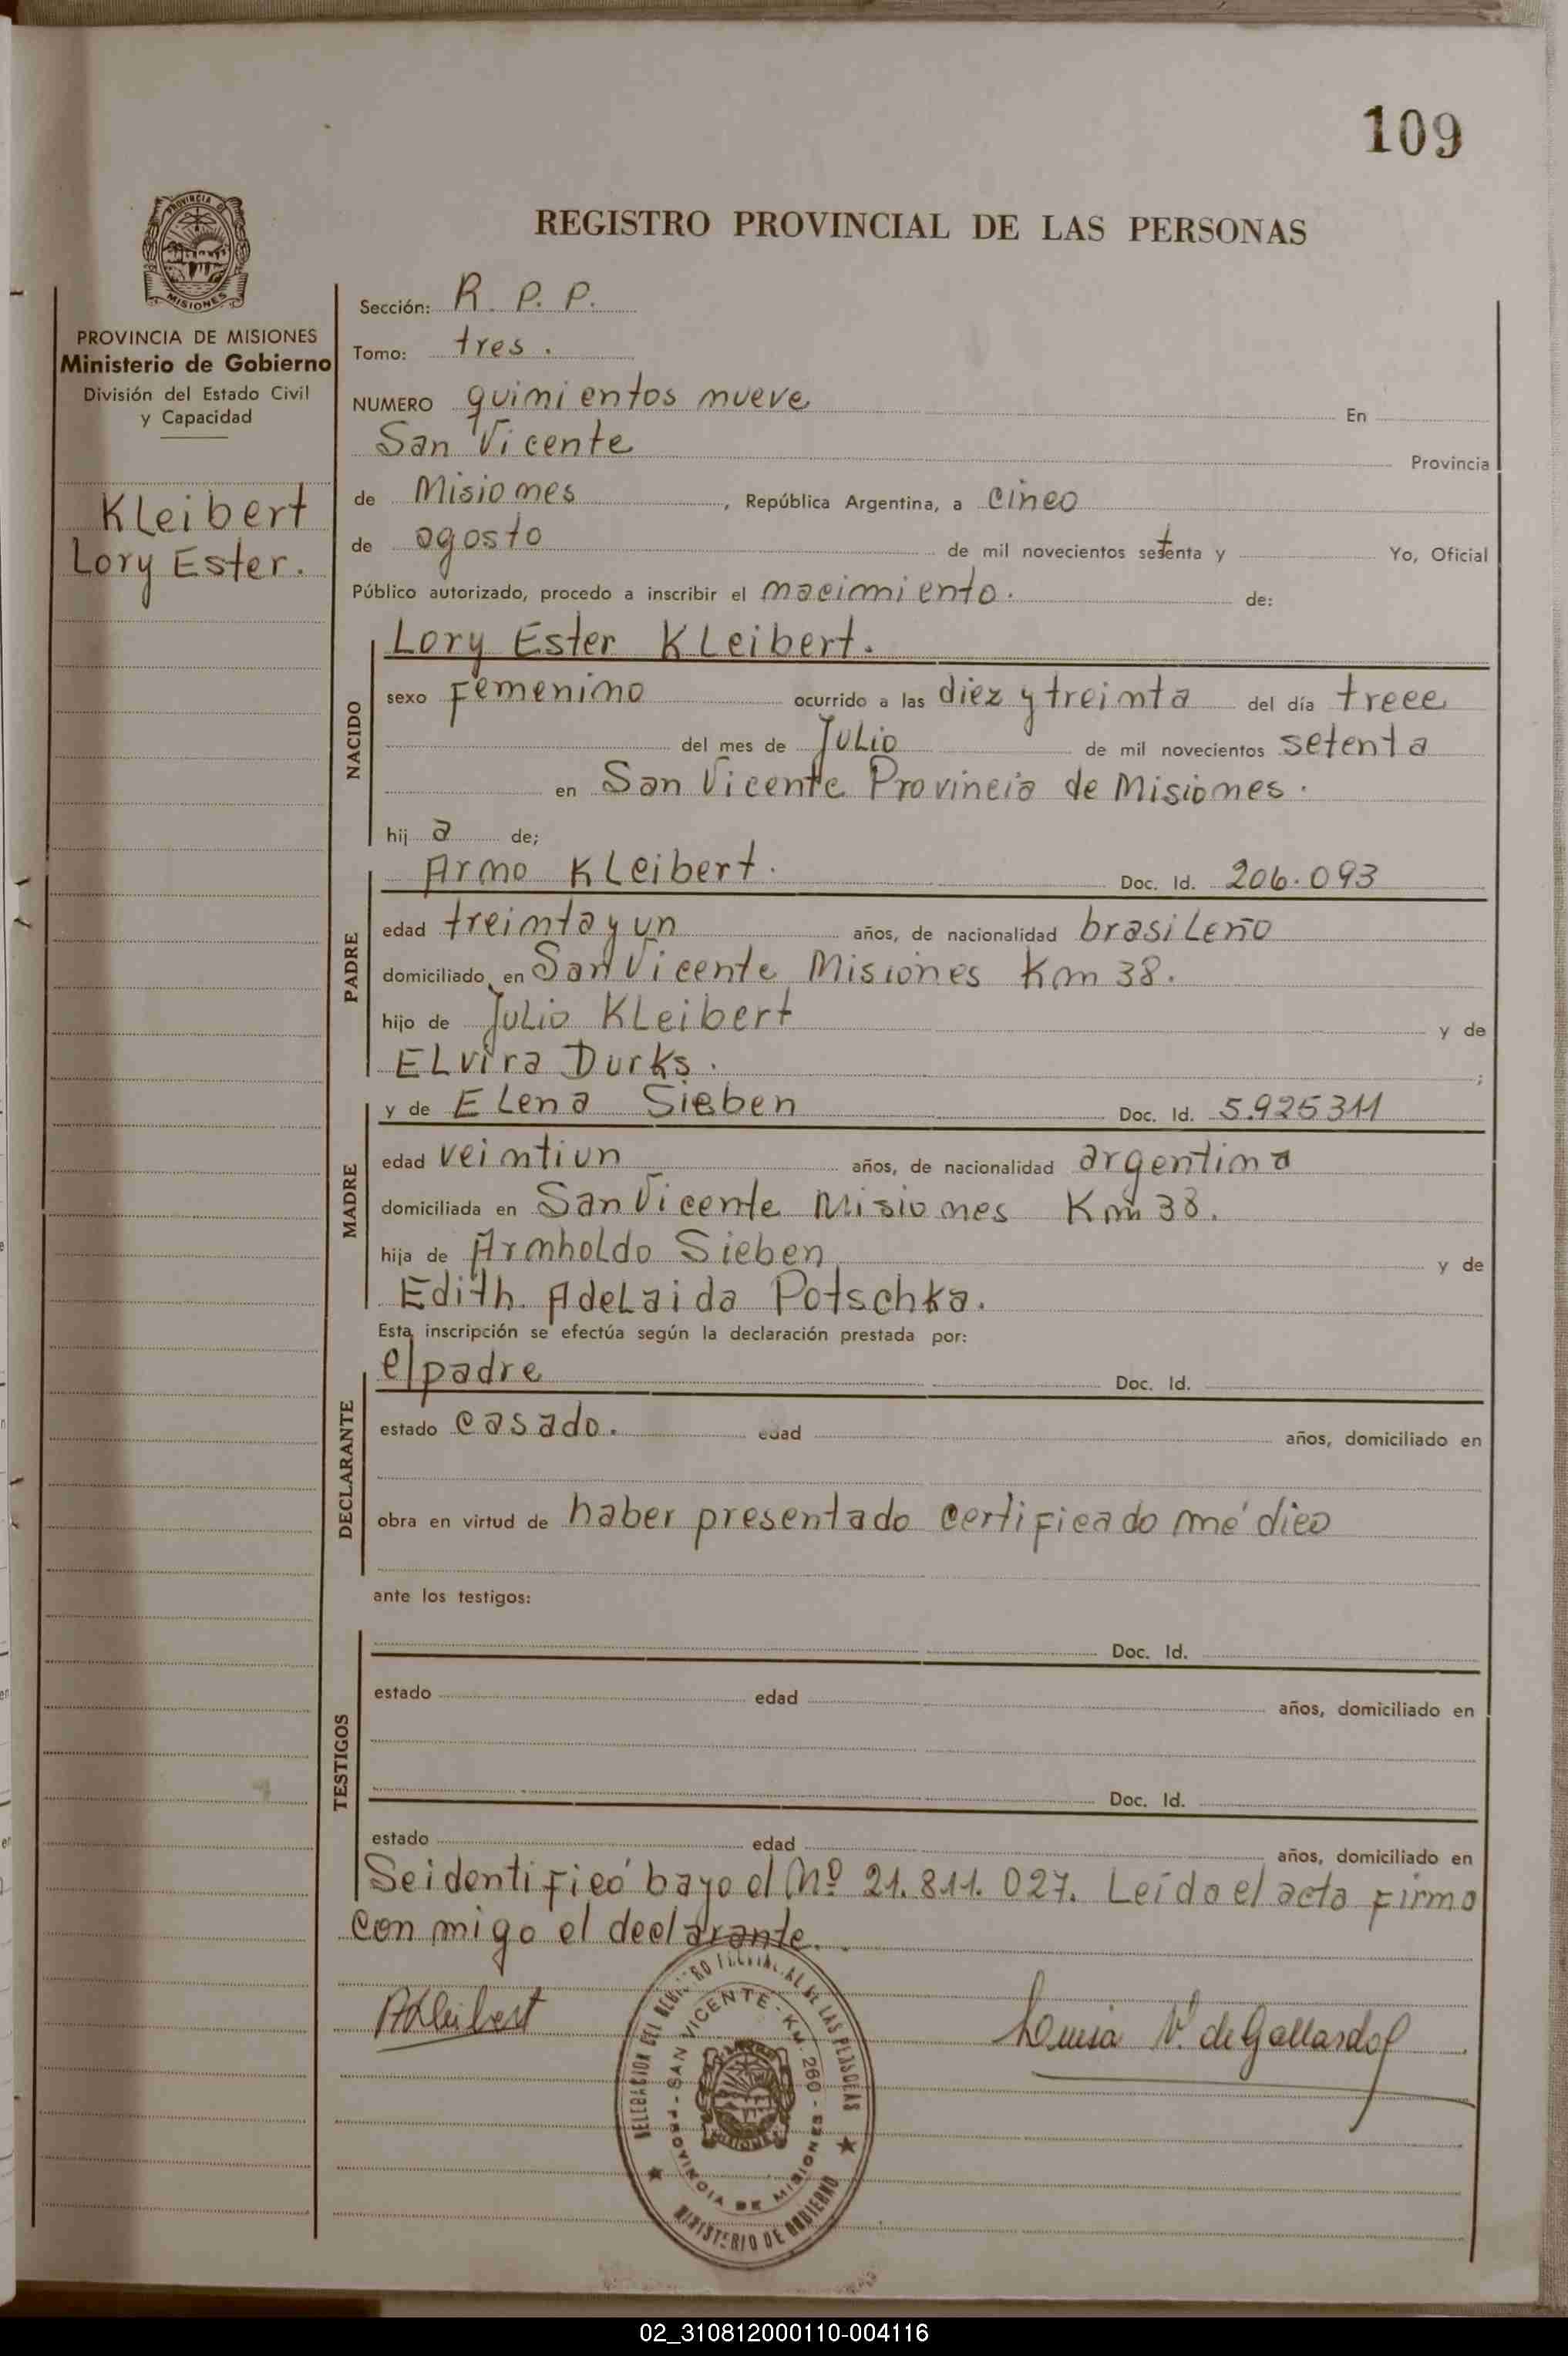 109
REGISTRO PROVINCIAL DE LAS PERSONAS
PROVINCIA DE MISIONES
Ministerio de Gobierno
División del Estado Civil
y Capacidad
Kleibert
Lory Ester.
Sección: R. P. P.
Tomo: tres.
NUMERO quinientos nueve En
San Vicente Provincia
de Misiones, República Argentina, a cinco
de agosto de mil novecientos setenta y Yo, Oficial
Público autorizado, procedo a inscribir el nacimiento. de:
NACIDO
Lory Ester Kleibert.
sexo femenino ocurrido a las diez y treinta del día trece
del mes de Julio de mil novecientos setenta
en San Vicente Provincia de Misiones.
hij a de;
PADRE
Arno Kleibert. Doc. Id. 206.093
edad treinta y un años, de nacionalidad brasileño
domiciliado en San Vicente Misiones Km 38.
hijo de Julio Kleibert y de
Elvira Durks. ;
MADRE
y de Elena Sieben Doc. Id. 5.925311
edad veintiun años, de nacionalidad argentina
domiciliada en San Vicente Misiones Km 38.
hija de Arnholdo Sieben y de
Edith Adelaida Potschka.
Esta inscripción se efectúa según la declaración prestada por:
DECLARANTE
el padre Doc. Id.
estado casado. edad años, domiciliado en
obra en virtud de haber presentado certificado médico
ante los testigos:
TESTIGOS
Doc. Id.
estado edad años, domiciliado en
Doc. Id.
estado edad años, domiciliado en
Se identificó bajo el Nº 21.811.027. Leída el acta firma
con migo el declarante.
AKleibert
Louisa V. de Gallardo
DELEGACION DEL REGISTRO PROVINCIAL DE LAS PERSONAS
SAN VICENTE - KM. 260 - PROVINCIA DE MISIONES
MINISTERIO DE GOBIERNO
02_310812000110-004116